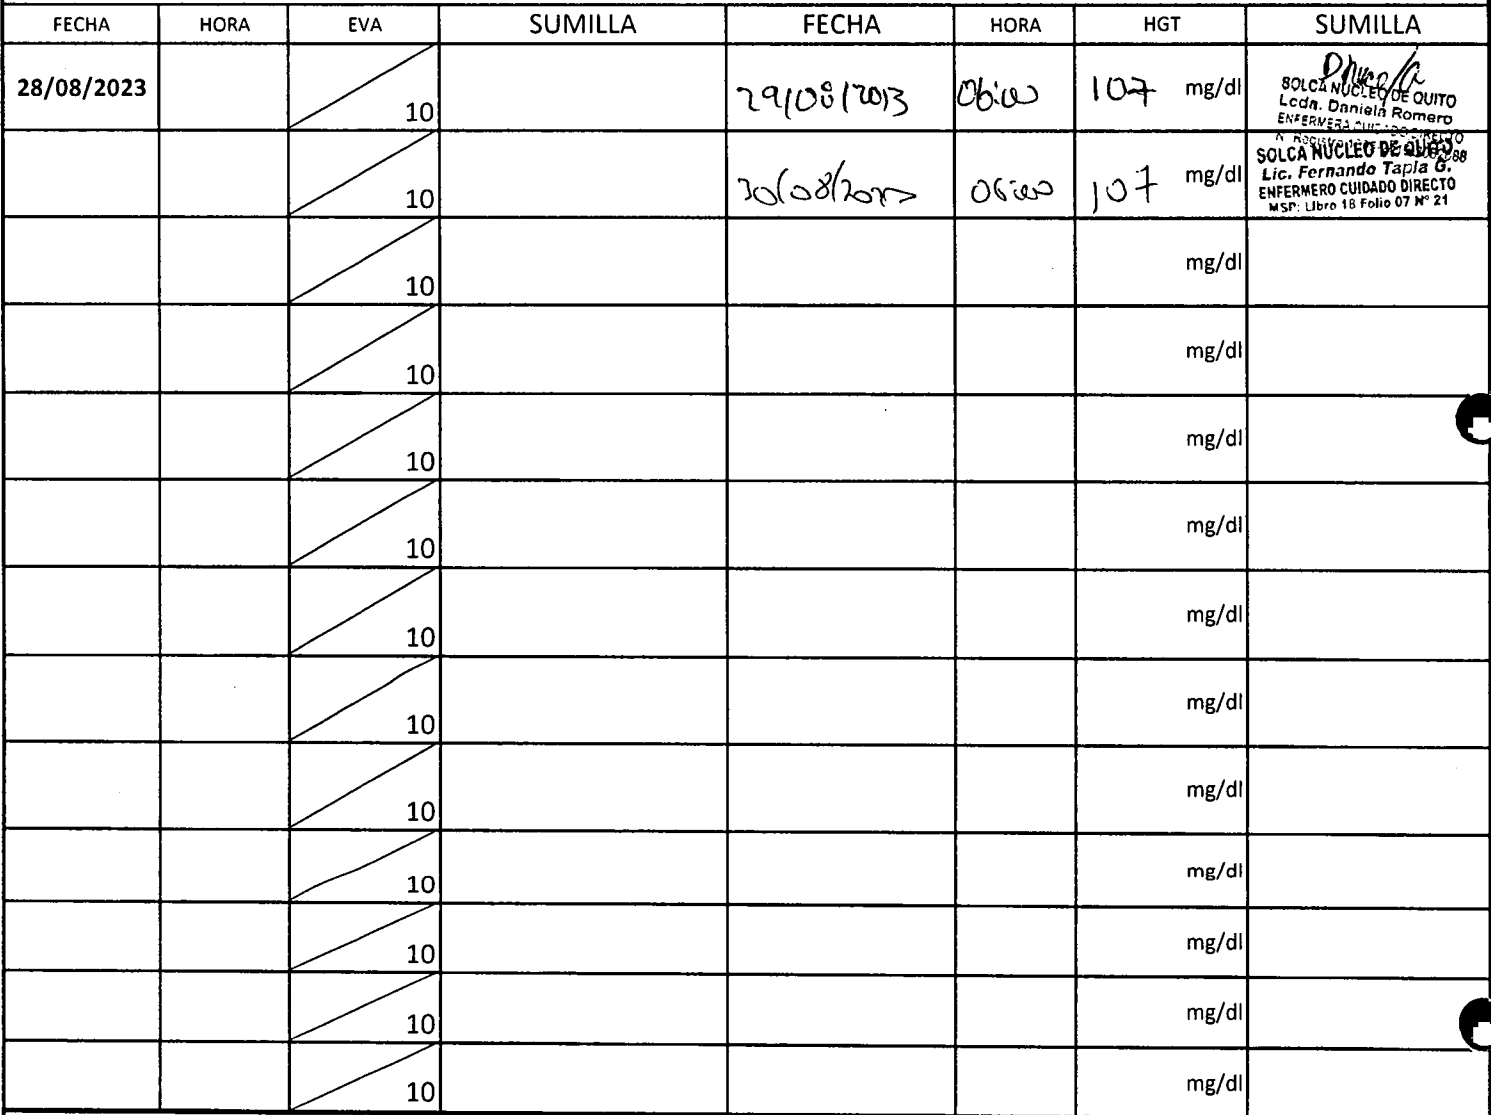 FECHA HORA EVA SUMILLA FECHA HORA HGT SUMILLA
28/08/2023 10 29/08/2013 06:00 107 mg/dl
SOLCA NUCLEO DE QUITO
Lcda. Daniela Romero
ENFERMERA CUIDADO DIRECTO
10 30/08/2023 06:00 107 mg/dl
SOLCA NUCLEO DE QUITO
Lic. Fernando Tapia G.
ENFERMERO CUIDADO DIRECTO
MSP: Libro 18 Folio 07 N° 21
10 mg/dl
10 mg/dl
10 mg/dl
10 mg/dl
10 mg/dl
10 mg/dl
10 mg/dl
10 mg/dl
10 mg/dl
10 mg/dl
10 mg/dl